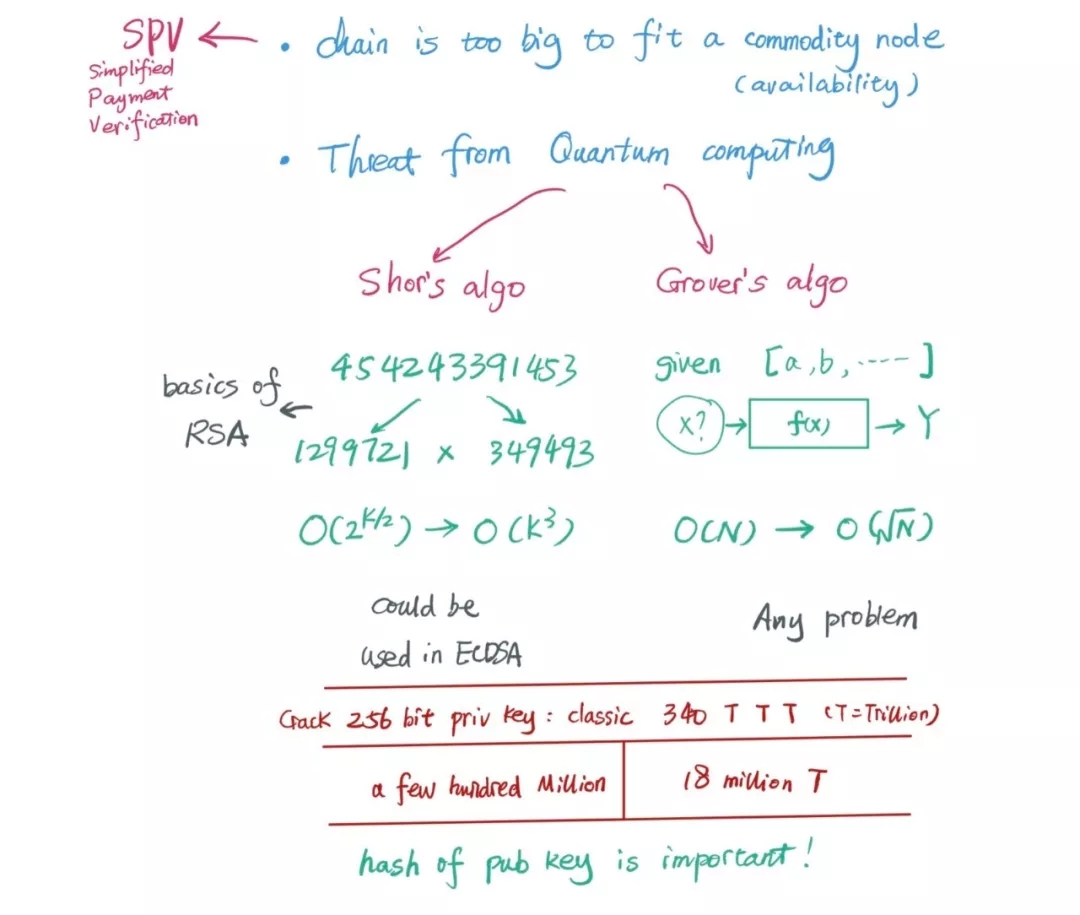 SPV ← • chain is too big to fit a commodity node
Simplified
Payment
Verification
(availability)
• Threat from Quantum computing
Shor's algo
Grover's algo
454243391453
basics of
RSA
1299721 x 349493
O(2^{K/2}) → O(K^3)
could be
used in ECDSA
given [a,b,----]
x? → f(x) → Y
O(N) → O(√N)
Any problem
Crack 256 bit priv key: classic 340 T T T (T=Trillion)
a few hundred Million
18 million T
hash of pub key is important!